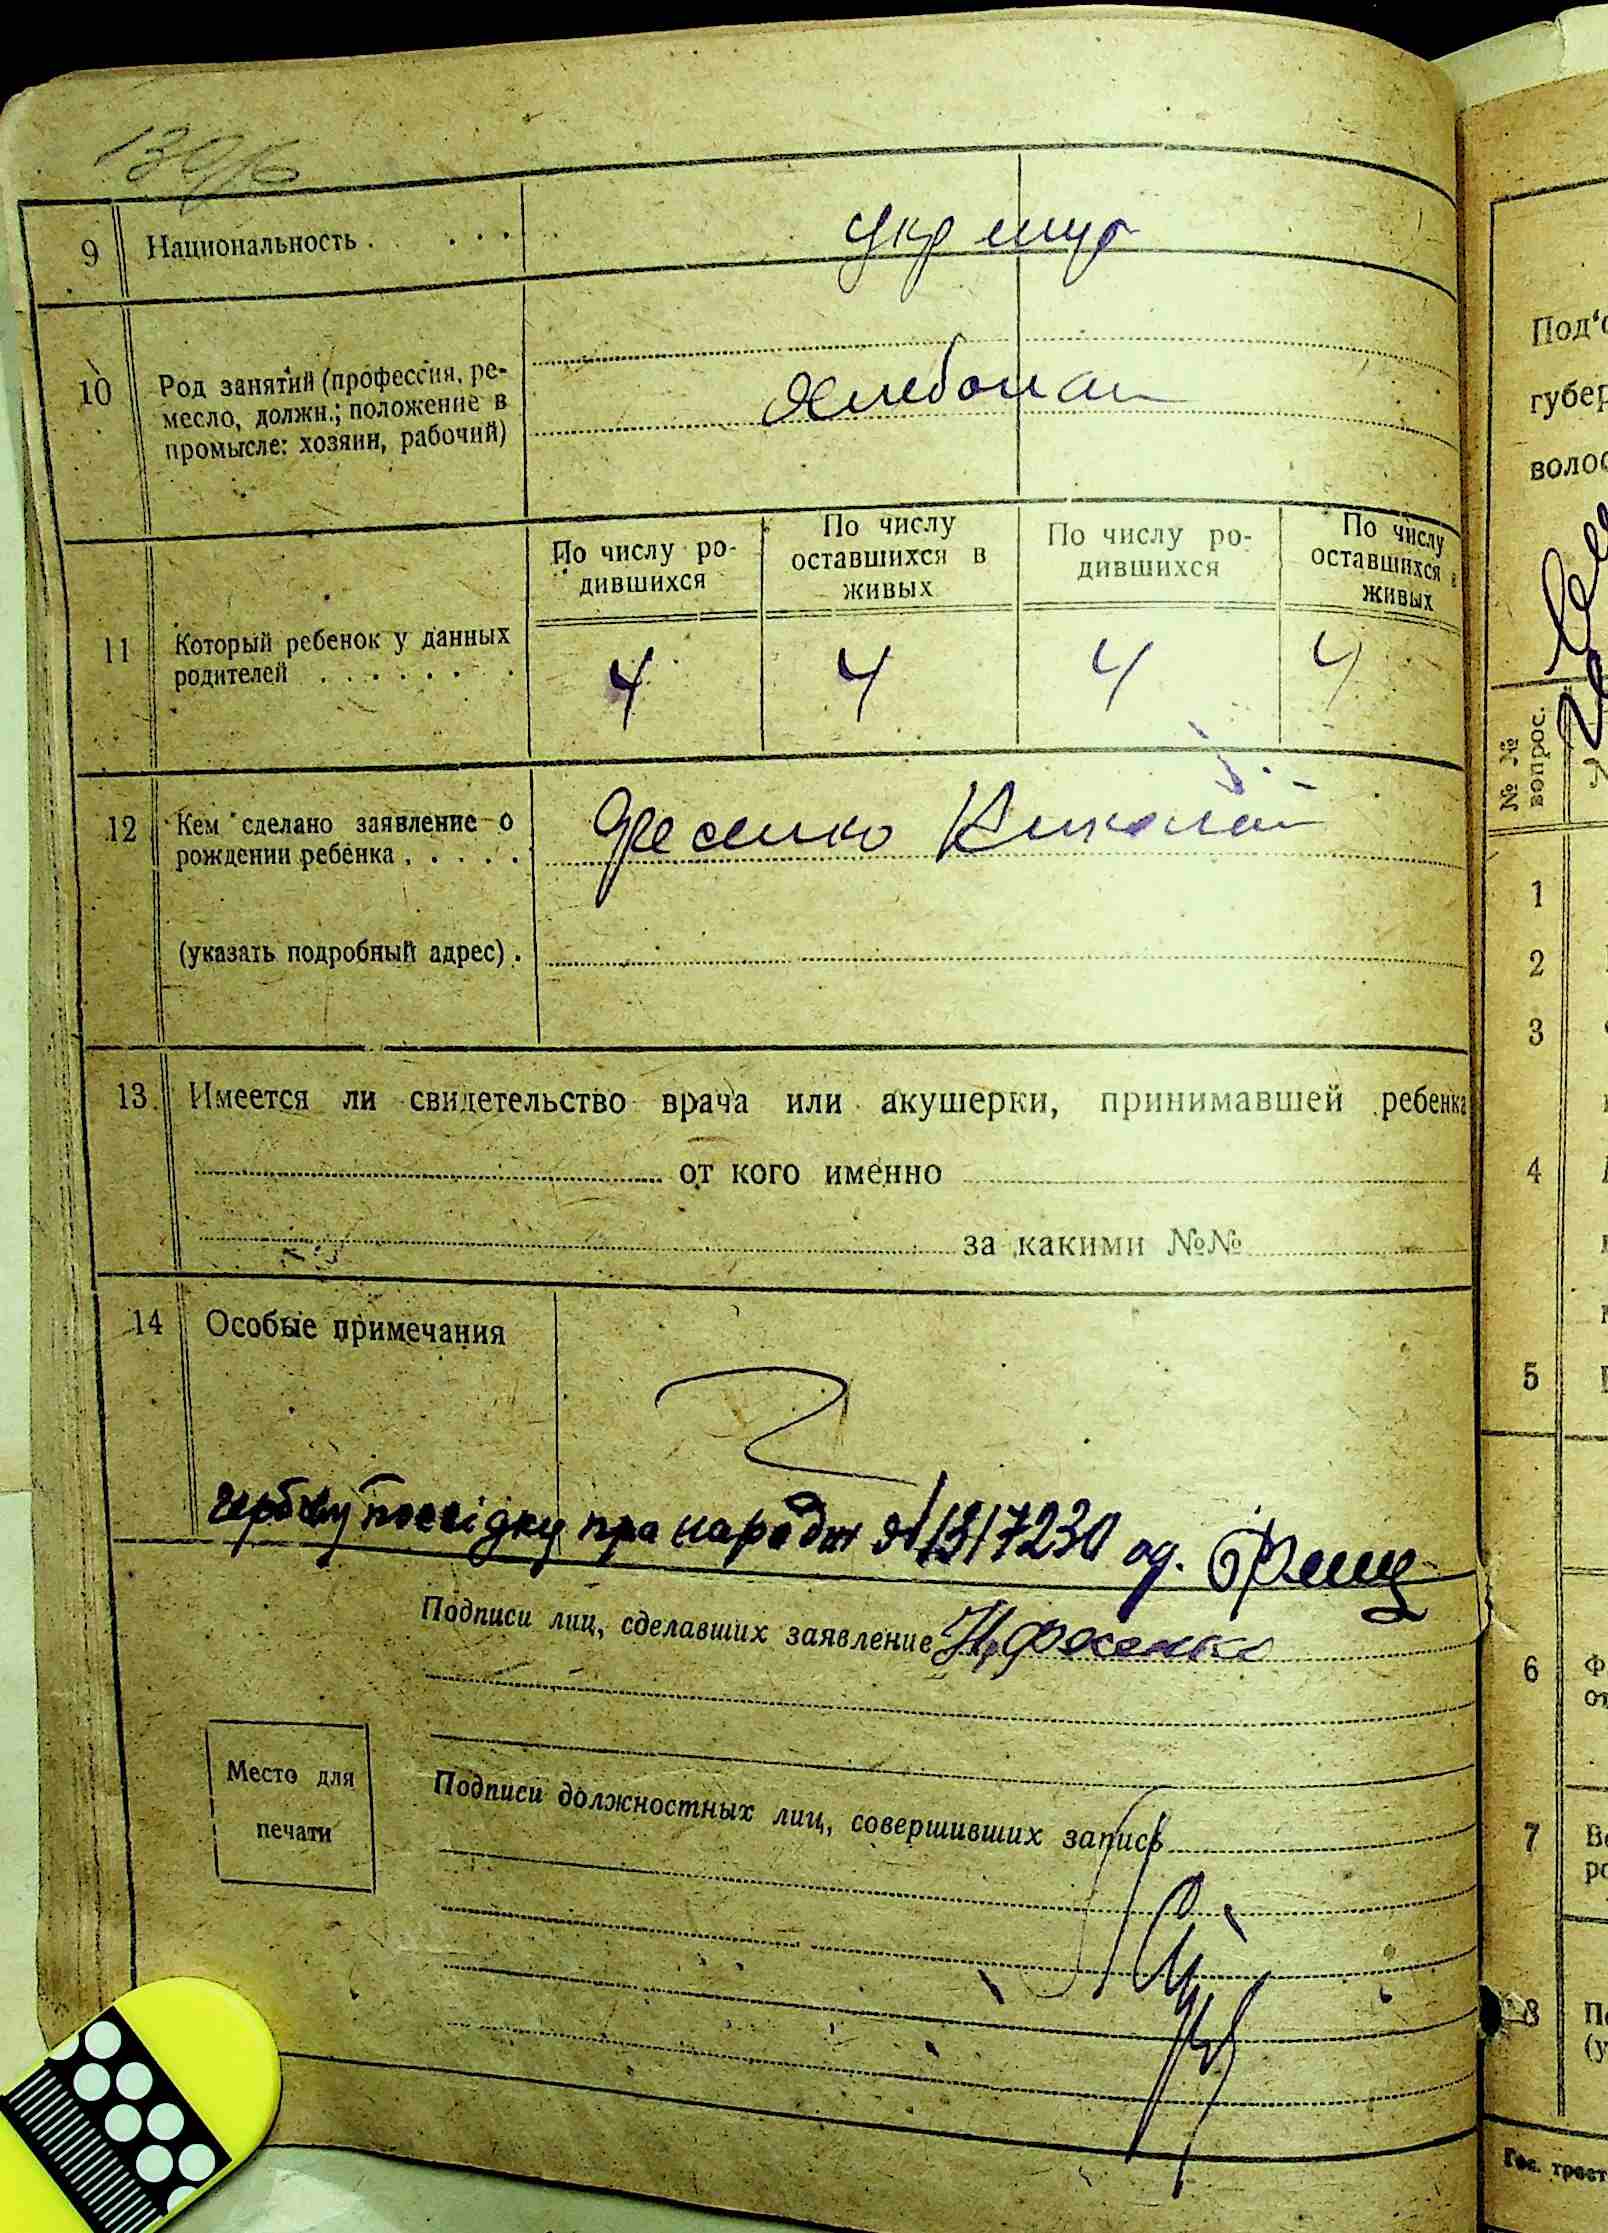 9 Национальность . . . . .
10 Род занятий (профессия, ре-
месло, должн.; положение в
промысле: хозяин, рабочий)
11 Который ребенок у данных
родителей . . . . . . . .
По числу ро-
дившихся
По числу
оставшихся в
живых
По числу ро-
дившихся
По числу
оставшихся в
живых
4 4 4 4
12 Кем сделано заявление о
рождении ребенка . . . . .
Николай
(указать подробный адрес) .
13 Имеется ли свидетельство врача или акушерки, принимавшей ребенка
от кого именно
за какими №№
14 Особые примечания
гербову посвідку про народж од.
Подписи лиц, сделавших заявление
Место для
печати
Подписи должностных лиц, совершивших запись
Под'
губер
волос
№ №
вопрос.
1
2
3
4
5
6
7
8
Гос. трест